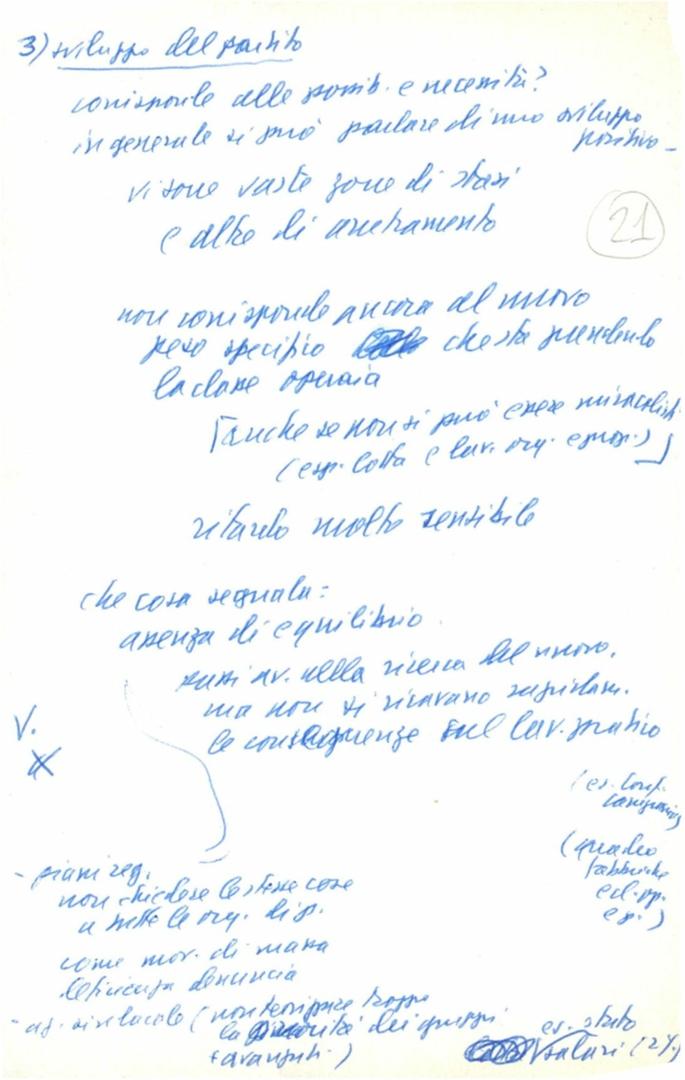 3) sviluppo del partito
corrisponde alle possib. e necessità?
in generale si può parlare di uno sviluppo
positivo –
vi sono vaste zone di stasi
e altre di arretramento
21
non corrisponde ancora al nuovo
peso specifico che sta prendendo
la classe operaia
[anche se non si può essere miracolisti
(esp. lotta e lav. org. e prop.)]
ritardo molto sensibile
che cosa segnala:
assenza di equilibrio.
passi av. nella ricerca del nuovo,
ma non si ricavano rapidam.
le conseguenze sul lav. pratico
V.
X
(es. Conf.
(quadro
fabbriche
ed. pp.
es.)
- piani reg.
non chiedere le stesse cose
a tutte le org. di p.
come mov. di massa
deficienza denuncia
- az. sindacale (non temiamo troppo
la dei gruppi
avanzati.)
es. stato
salari (24)